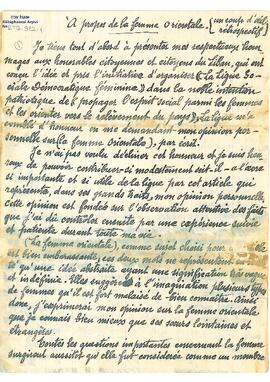 A propos de la femme Orientale. (un coup d'œil
rétrospectif)
① Je tiens tout d'abord à présenter mes respectueux hom-
mages aux honorables citoyennes et citoyens du Liban, qui ont
conçu l'idée et pris l'initiative d'organiser (La Ligue So-
ciale Démocratique féminine) dans la noble intention
patriotique de propager l'esprit social parmi les femmes
et les orienter vers le relèvement du pays. La Ligue m'a
comblé d'honneur en me demandant mon opinion per-
sonnelle sur (la femme Orientale), par écrit.
Je n'ai pas voulu décliner cet honneur et je suis heu-
reux de pouvoir contribuer si modestement soit-il à l'œuvre
si importante et si utile de la Ligue par cet article qui
représente, dans ses grands traits, mon opinion personnelle,
cette opinion est fondée sur l'observation attentive des faits
que j'ai dû contrôler ensuite par une expérience suivie
et patiente durant toute ma vie.
(La femme orientale), comme sujet choisi pour
est bien embarrassante, ces deux mots ne représentent
qu'une idée abstraite ayant une signification très vague
et indéfinie. Elles suggèrent à l'imagination plusieurs types
de femmes qu'il est fort malaisé de bien connaître. Ainsi
donc, j'exprimerai mon opinion sur la femme orientale
que je connais bien mieux que ses sœurs lointaines et
étrangères.
Toutes les questions importantes concernant la femme
surgirent aussitôt qu'elle fut considérée comme un membre